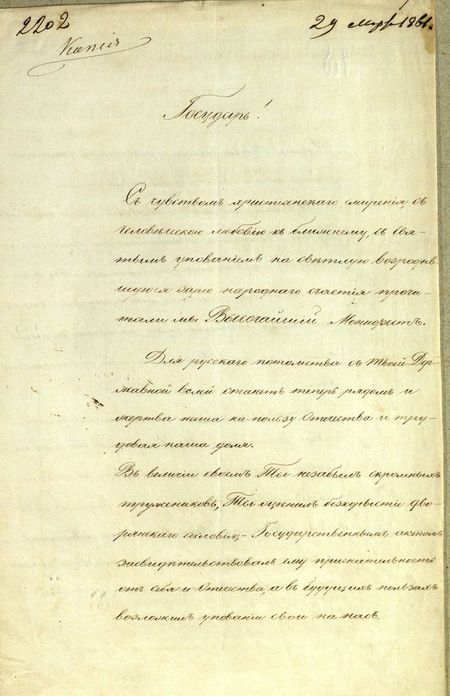 2202
29 Мар. 1861.
Копія
Государь!
Съ чувствомъ христіанскаго смиренія, съ
человѣческою любовію къ ближнему, съ свя-
тымъ упованіемъ на свѣтлую возродив-
шуюся зарю народнаго счастія прочи-
тали мы Высочайшій Манифестъ.
Для русскаго потомства съ Твоей Дер-
жавной волей станетъ теперь рядомъ и
жертва наша на пользу Отечества и тру-
довая наша доля.
Въ величіи своемъ Ты незабылъ скромныхъ
тружениковъ, Ты оцѣнилъ безкорыстіе дво-
рянскаго сословія, – Государственнымъ актомъ
засвидѣтельствовалъ ему признательность
отъ себя и Отечества, а въ будущихъ пользахъ
возложилъ упованіи свои на насъ.